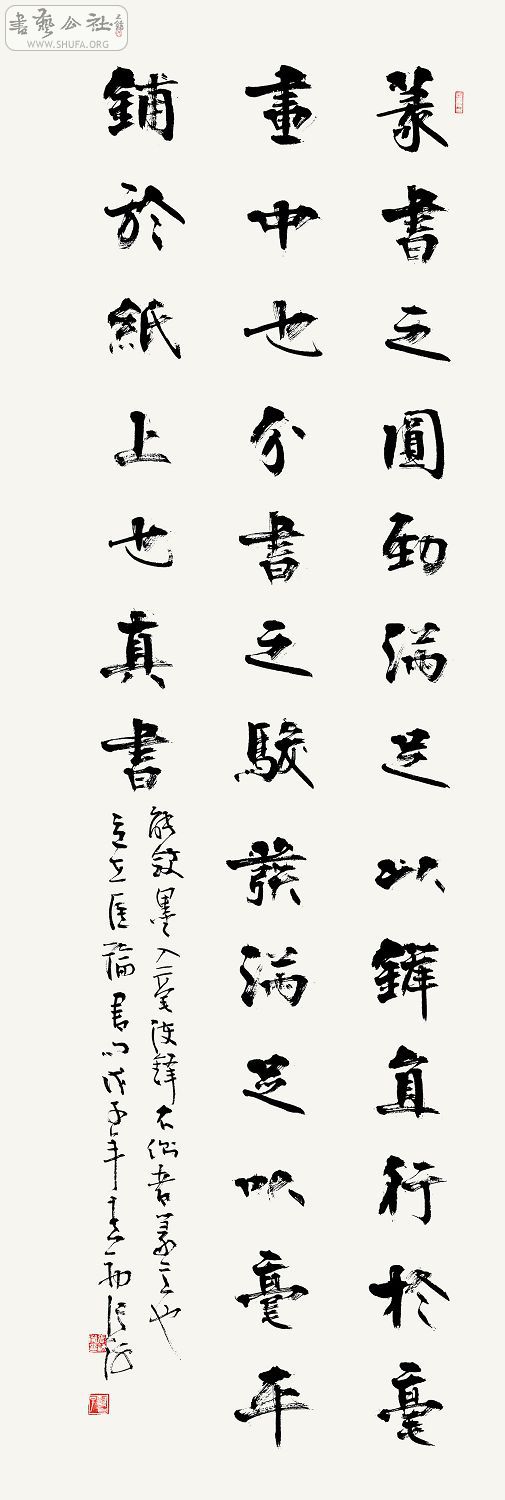 書藝公社
WWW.SHUFA.ORG
篆書之圓勁滿足以鋒直行於毫
畫中也分書之駿發滿足以毫平
鋪於紙上也真書
能斂墨入毫使鋒不側者篆意也
包世臣論書句戊子年春初